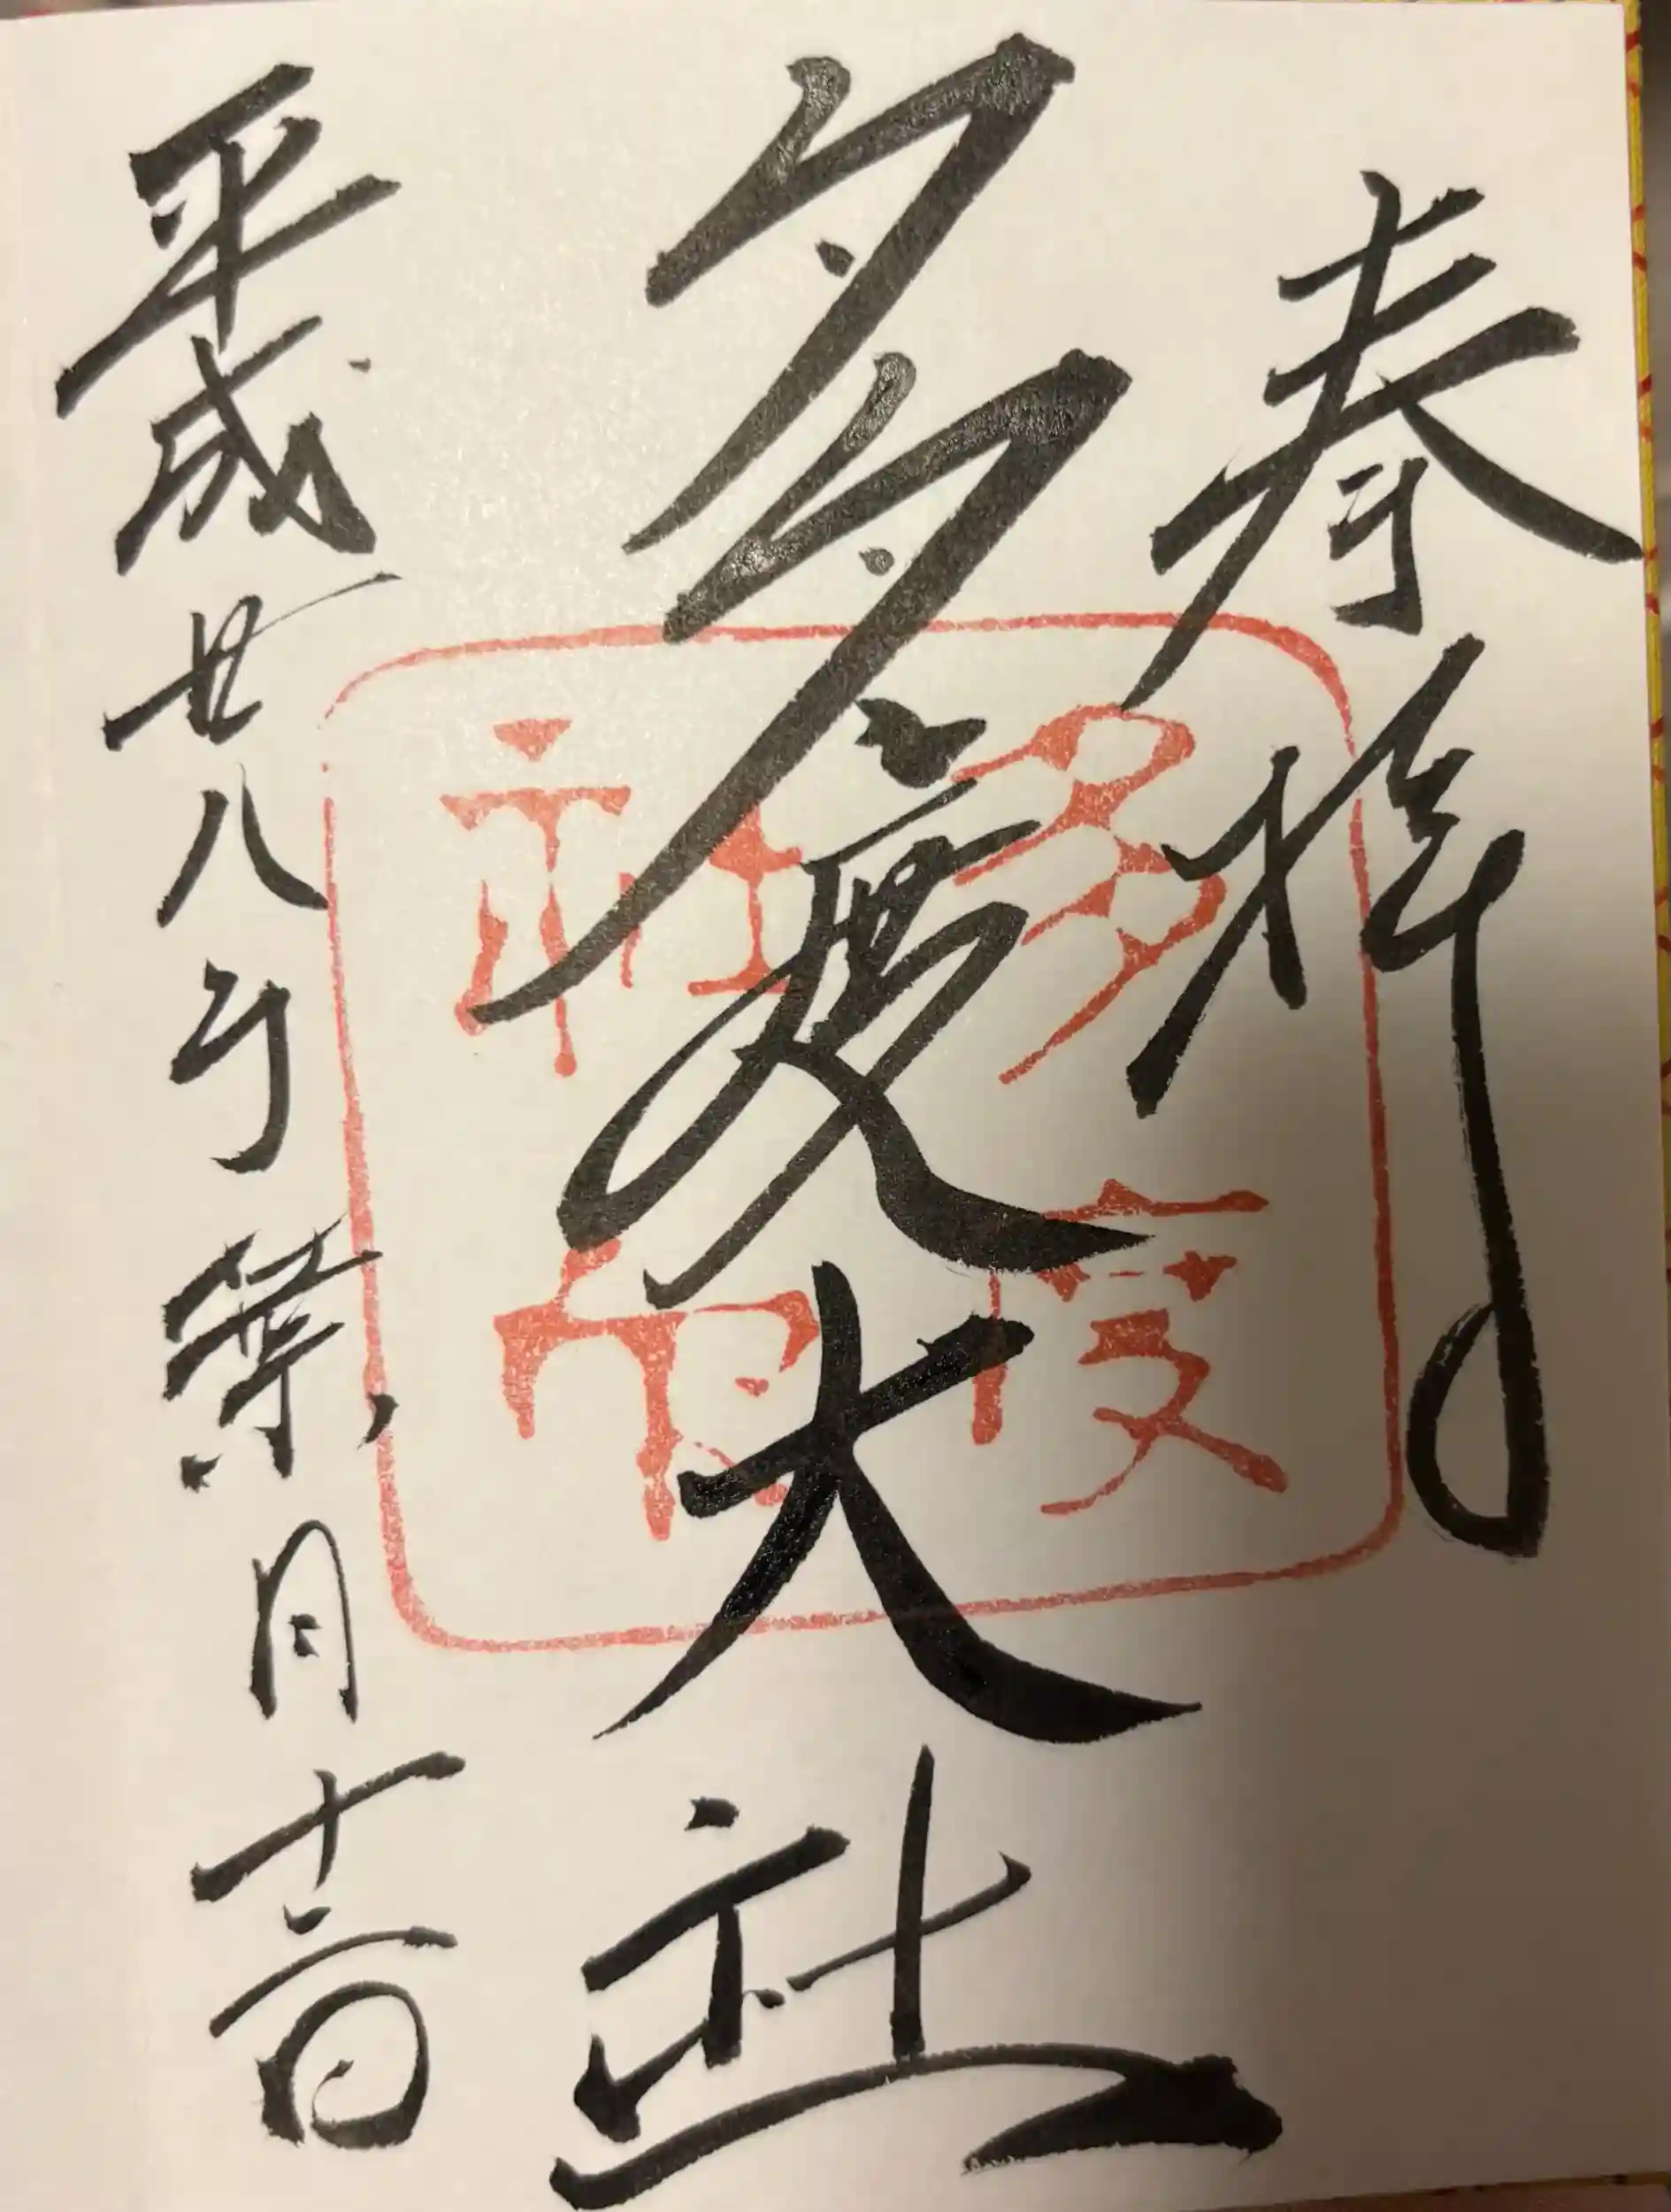 奉拝
多度大社
平成廿八年葉月
多度
社印